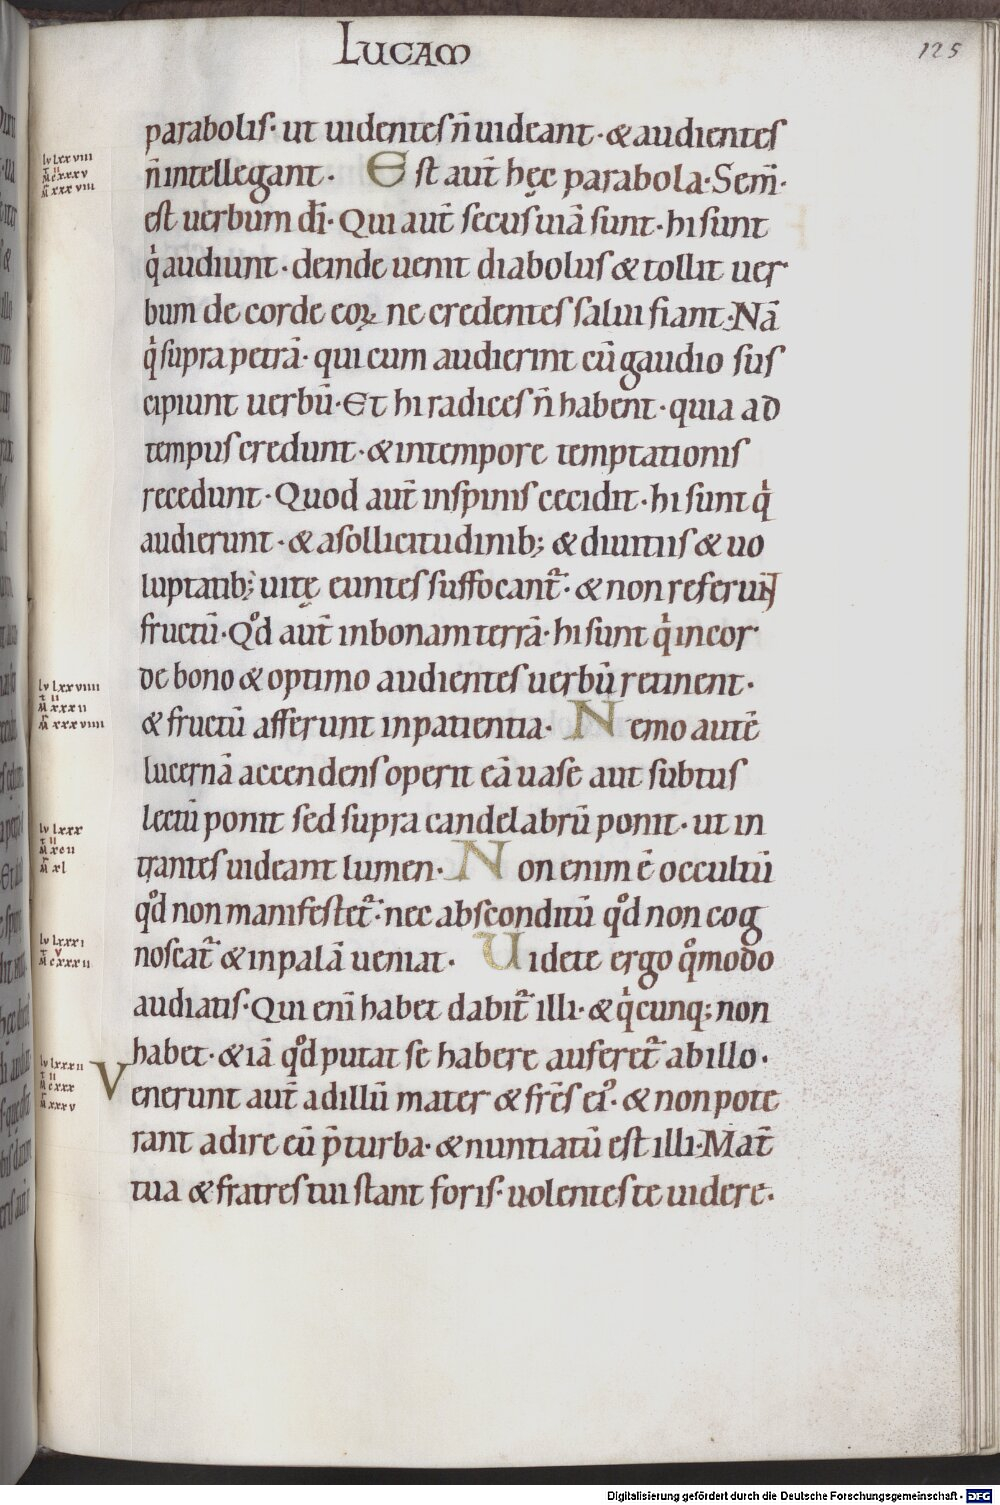 LUCAM
125
parabolis· ut uidentes n̄ uideant· & audientes
n̄ intellegant· Est aut̄ hęc parabola· Sem̄·
est uerbum dī· Qui aut̄ secus uiā sunt· hi sunt
qͥ audiunt· deinde uenit diabolus & tollit uer
bum de corde eoꝝ ne credentes salui fiant· Nā
qͥ supra petrā· qui cum audierint cū gaudio sus
cipiunt uerbū· Et hi radices n̄ habent· quia ad
tempus credunt· & in tempore temptationis
recedunt· Quod aut̄ in spinis cecidit· hi sunt qͥ
audierunt· & a sollicitudinib; & diuitiis & uo
luptatib; uitę euntes suffocant̄· & non referunt
fructū· Qͦd aut̄ in bonam terrā· hi sunt qͥ in cor
de bono & optimo audientes uerbū retinent·
& fructū afferunt in patientia· Nemo autē
lucernā accendens operit eā uase aut subtus
lectū ponit sed supra candelabrū ponit· ut in
trantes uideant lumen· Non enim ē occultū
qͦd non manifestet̄· nec absconditū qͦd non cog
noscat̄ & in palā ueniat· Uidete ergo qͦmodo
audiatis· Qui enī habet dabit̄ illi· & qͥcunq; non
habet· & iā qͦd putat se habere auferet̄ ab illo·
Venerunt aut̄ ad illū mater & fr̄es ei᾿· & non pote
rant adire eū p̄ turba· & nuntiatū est illi· Mat̄
tua & fratres tui stant foris· uolentes te uidere·
lv lxxviii
m̄ cxxxv
m̄ xxxviii
lv lxxviiii
m̄ xxxii
m̄ xxxviiii
lv lxxx
m̄ xcii
m̄ xl
lv lxxxi
m̄ cxxxii
lv lxxxii
m̄ cxxx
m̄ xxxv
Digitalisierung gefördert durch die Deutsche Forschungsgemeinschaft - DFG